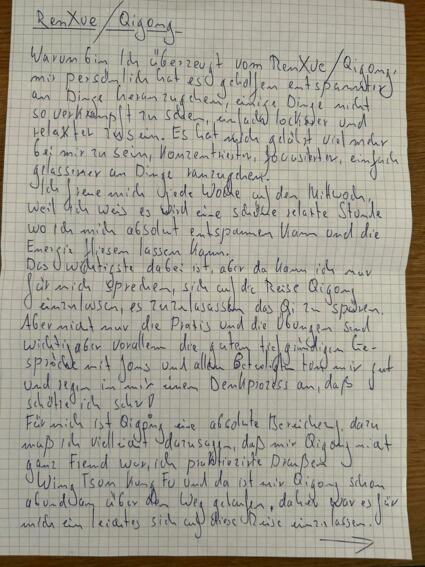 RenXue / Qigong
Warum bin Ich überzeugt vom RenXue / Qigong,
mir persönlich hat es geholfen entspannter
an Dinge heranzugehen, einige Dinge nicht
so verkrampft zu sehen, einfach lockerer und
relaxter zu sein. Es hat mich gelehrt viel mehr
bei mir zu sein, konzentrierter, fokusierter, einfach
gelassener an Dinge ranzugehen.
Ich freue mich jede Woche auf den Mittwoch,
weil Ich weis es wird eine schöne relaxte Stunde
wo ich mich absolut entspannen kann und die
Energie fliesen lassen kann.
Das Wichtigste dabei ist, aber da kann ich nur
für mich sprechen, sich auf die Reise Qigong
einzulassen, es zuzulassen das Qi zu spüren.
Aber nicht nur die Praxis und die Übungen sind
wichtig aber vorallem die guten tiefgründigen Ge-
spräche mit Jens und allen Beteiligten tun mir gut
und regen in mir einen Denkprozess an, daß
schätze ich sehr!
Für mich ist Qigong eine absolute dazu
muß ich vielleicht dazusagen, daß mir Qigong nicht
ganz Fremd war, ich praktizierte Draußen
Wing Tsun Kung Fu und da ist mir Qigong schon
ab und an über den Weg gelaufen, daher war es für
mich ein leichtes sich auf diese Reise einzulassen.